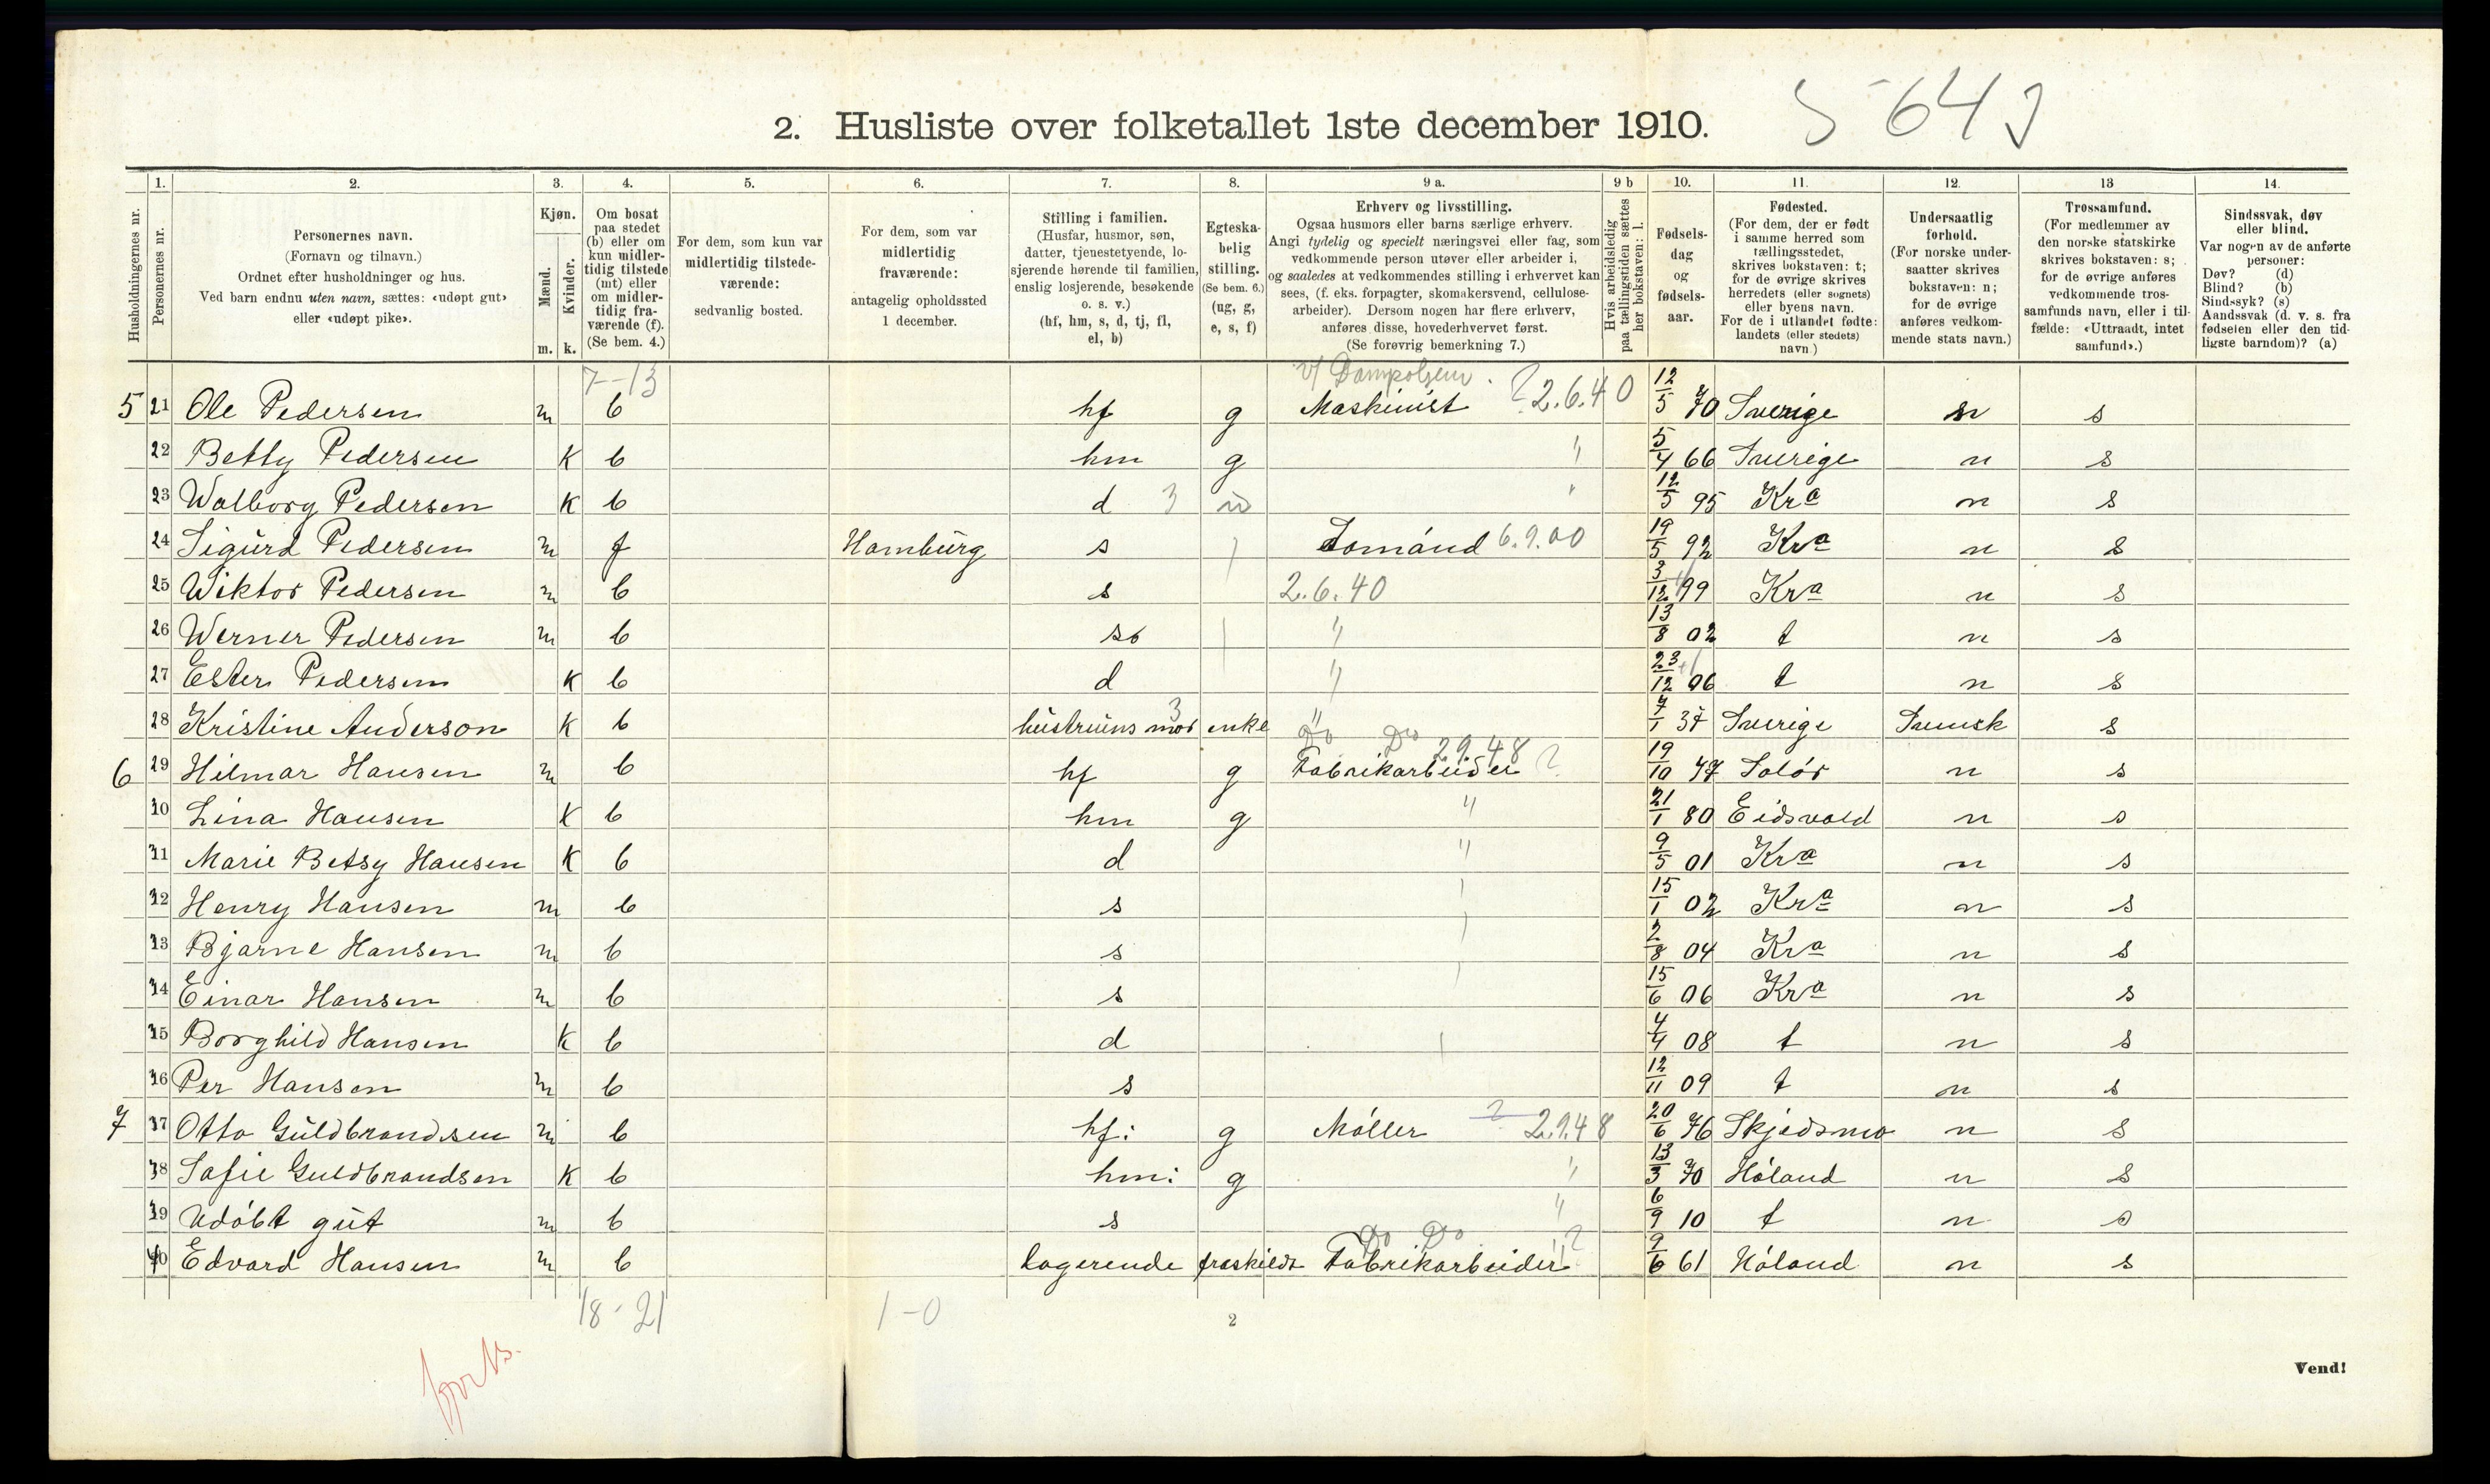 S 64 J
2. Husliste over folketallet 1ste december 1910.
1. 2. 3. 4. 5. 6. 7. 8. 9 a. 9 b 10. 11. 12. 13 14.
Husholdningernes nr.
Personernes nr.
Personernes navn.
(Fornavn og tilnavn.)
Ordnet efter husholdninger og hus.
Ved barn endnu uten navn, sættes: «udøpt gut»
eller «udøpt pike».
Kjøn.
Mænd.
Kvinder.
m. k.
Om bosat
paa stedet
(b) eller om
kun midler-
tidig tilstede
(mt) eller
om midler-
tidig fra-
værende (f).
(Se bem. 4.)
For dem, som kun var
midlertidig tilstede-
værende:
sedvanlig bosted.
For dem, som var
midlertidig
fraværende:
antagelig opholdssted
1 december.
Stilling i familien.
(Husfar, husmor, søn,
datter, tjenestetyende, lo-
sjerende hørende til familien,
enslig losjerende, besøkende
o. s. v.)
(hf, hm, s, d, tj, fl,
el, b)
Egteska-
belig
stilling.
(Se bem. 6.)
(ug, g,
e, s, f)
Erhverv og livsstilling.
Ogsaa husmors eller barns særlige erhverv.
Angi tydelig og specielt næringsvei eller fag, som
vedkommende person utøver eller arbeider i,
og saaledes at vedkommendes stilling i erhvervet kan
sees, (f. eks. forpagter, skomakersvend, cellulose-
arbeider). Dersom nogen har flere erhverv,
anføres disse, hovederhvervet først.
(Se forøvrig bemerkning 7.)
Hvis arbeidsledig
paa tællingstiden sættes
her bokstaven: l.
Fødsels-
dag
og
fødsels-
aar.
Fødested.
(For dem, der er født
i samme herred som
tællingsstedet,
skrives bokstaven: t;
for de øvrige skrives
herredets (eller sognets)
eller byens navn.
For de i utlandet fødte:
landets (eller stedets)
navn.)
Undersaatlig
forhold.
(For norske under-
saatter skrives
bokstaven: n;
for de øvrige
anføres vedkom-
mende stats navn.)
Trossamfund.
(For medlemmer av
den norske statskirke
skrives bokstaven: s;
for de øvrige anføres
vedkommende tros-
samfunds navn, eller i til-
fælde: «Uttraadt, intet
samfund».)
Sindssvak, døv
eller blind.
Var nogen av de anførte
personer:
Døv? (d)
Blind? (b)
Sindssyk? (s)
Aandssvak (d. v. s. fra
fødselen eller den tid-
ligste barndom)? (a)
7-13 v/ Dampolsem.
5 21 Ole Pedersen m b hf g Maskinist ? 2.6.40 12/5 70 Sverige n s
22 Betty Pedersen K b hm g " 5/4 66 Sverige n s
23 Walborg Pedersen K b d 3 " 12/5 95 Kra n s
24 Sigurd Pedersen m f Hamburg s Sømand 6.9.00 19/5 92 Kra n s
25 Wiktor Pedersen m b s 2.6.40 3/12 99 Kra n s
26 Werner Pedersen m b s b " 13/8 02 t n s
27 Ester Pedersen K b d " 23/12 06 t n s
28 Kristine Anderson K b hustruens mor 3 enke " 7/1 37 Sverige Svensk s
Do Do 29.48
6 29 Hilmar Hansen m b hf g Fabrikarbeider ? 19/10 77 Solør n s
30 Lina Hansen K b hm g " 21/1 80 Eidsvold n s
31 Marie Betsy Hansen K b d " 9/5 01 Kra n s
32 Henry Hansen m b s 15/1 02 Kra n s
33 Bjarne Hansen m b s 2/8 04 Kra n s
34 Einar Hansen m b s 15/6 06 Kra n s
35 Borghild Hansen K b d 4/4 08 t n s
36 Per Hansen m b s 12/11 09 t n s
7 37 Otto Guldbrandsen m b hf: g Møller ? 2.9.48 20/6 76 Skjedsmo n s
38 Sofie Guldbrandsen K b hm: g " 13/3 70 Høland n s
39 Udøbt gut m b s " 6/9 10 t n s
Do Do " ?
40 Edvard Hansen m b logerende fraskildt Fabrikarbeider 9/6 61 Høland n s
18-21 1-0
2
forts.
Vend!